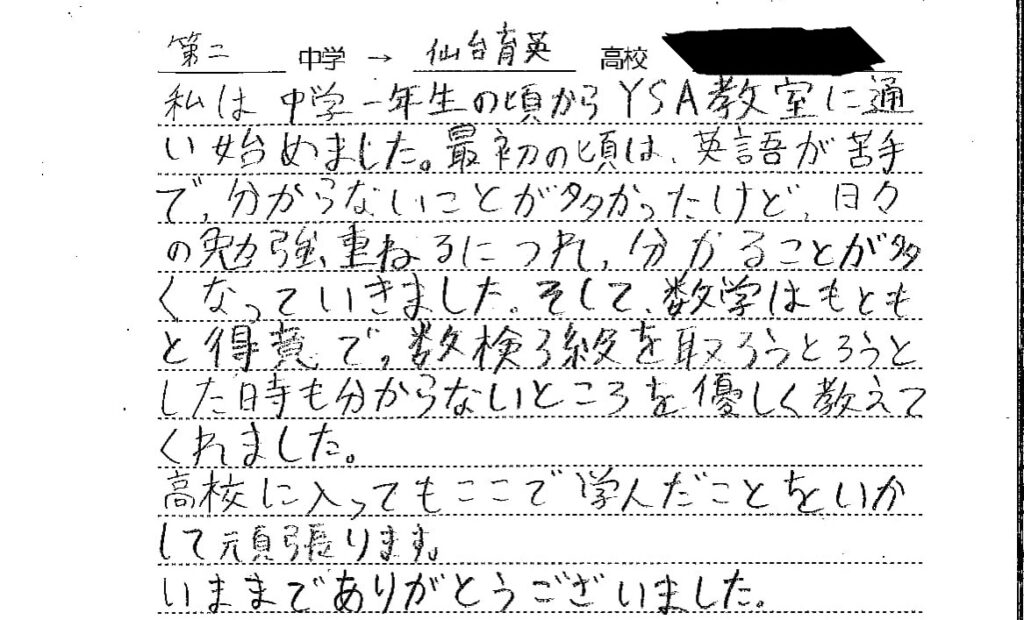 第二 中学 → 仙台育英 高校
私は中学一年生の頃からYSA教室に通
い始めました。最初の頃は、英語が苦手
で、分からないことが多かったけど、日々
の勉強、重ねるにつれ、分かることが多
くなっていきました。そして、数学はもとも
と得意で、数検3級を取ろうとろうと
した時も分からないところを優しく教えて
くれました。
高校に入ってもここで学んだことをいか
して頑張ります。
いままでありがとうございました。